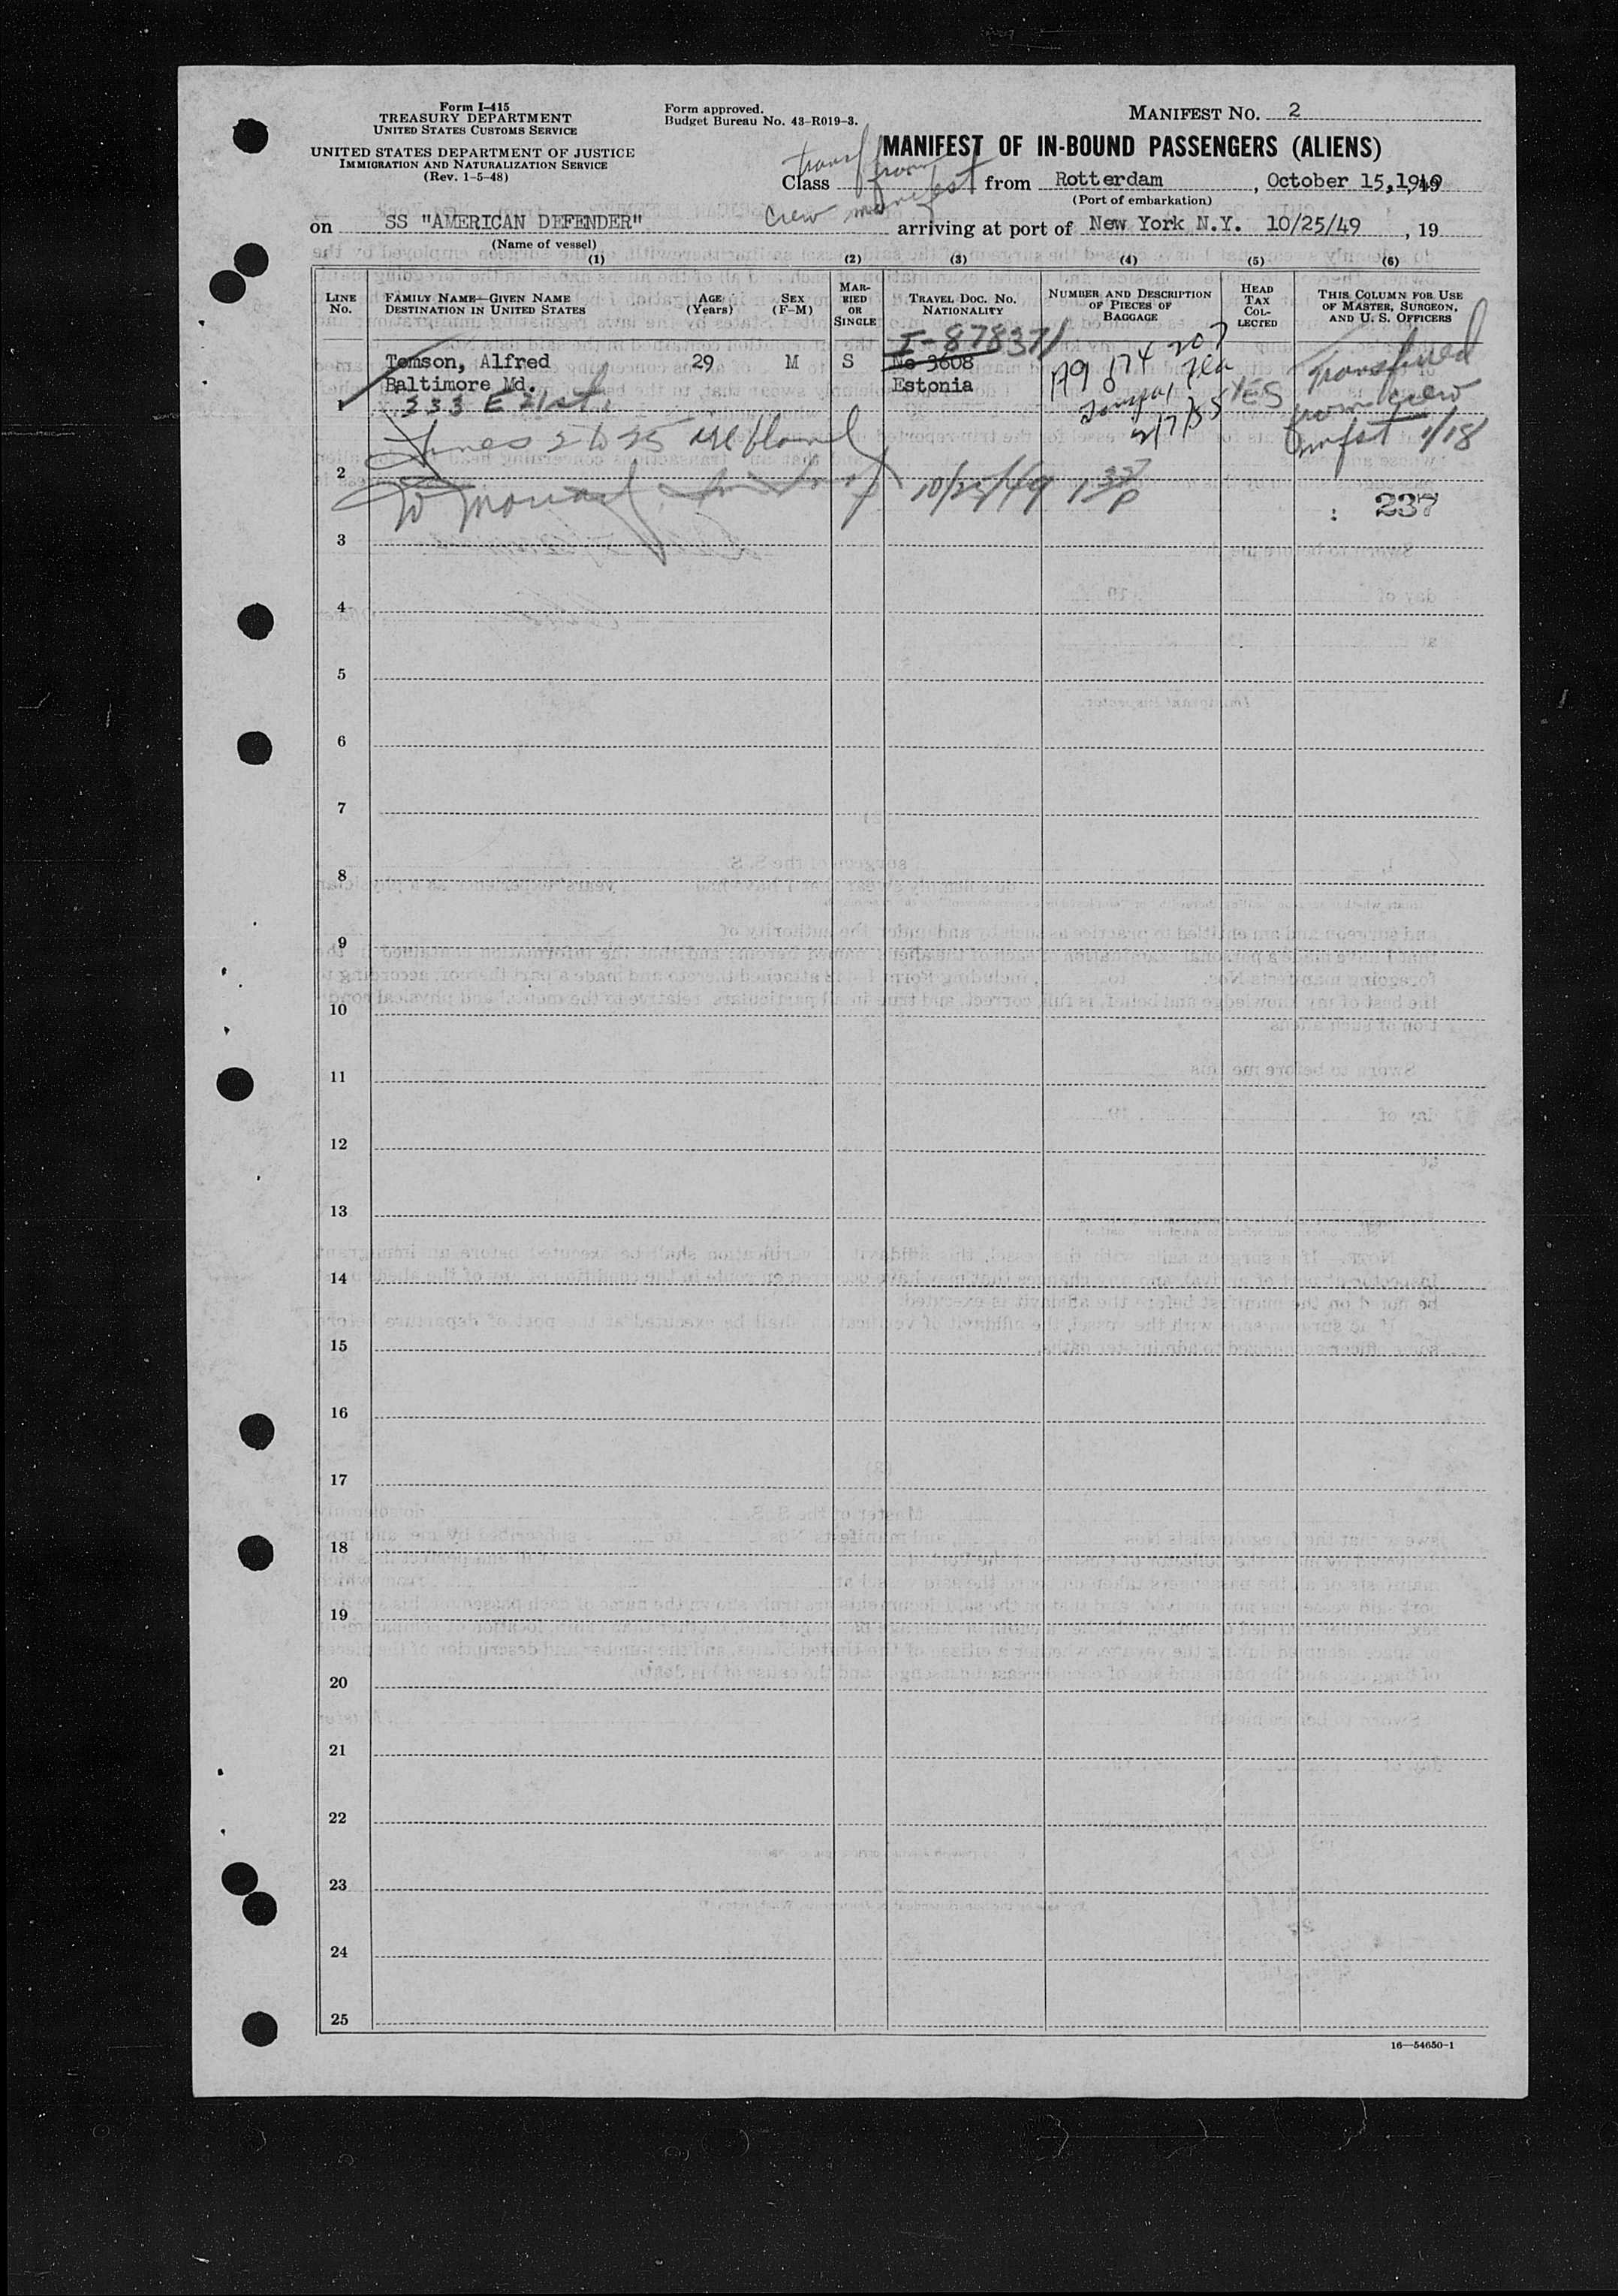 Form I-415
TREASURY DEPARTMENT
UNITED STATES CUSTOMS SERVICE
UNITED STATES DEPARTMENT OF JUSTICE
IMMIGRATION AND NATURALIZATION SERVICE
(Rev. 1-5-48)
Form approved.
Budget Bureau No. 43-R019-3.
MANIFEST No. 2
MANIFEST OF IN-BOUND PASSENGERS (ALIENS)
transf from
crew manifest
Class from Rotterdam, October 15, 1949
(Port of embarkation)
on SS "AMERICAN DEFENDER" arriving at port of New York N.Y. 10/25/49, 19
(Name of vessel)
(1) (2) (3) (4) (5) (6)
LINE No.
FAMILY NAME—GIVEN NAME
DESTINATION IN UNITED STATES
AGE (Years)
SEX (F-M)
MARRIED OR SINGLE
TRAVEL DOC. NO.
NATIONALITY
NUMBER AND DESCRIPTION OF PIECES OF BAGGAGE
HEAD TAX COLLECTED
THIS COLUMN FOR USE OF MASTER, SURGEON, AND U. S. OFFICERS
I-878371
Tomson, Alfred 29 M S No 3608
Baltimore Md. Estonia
333 E 21 st.
A9 174 207
Fla
2/7/55
YES
Transferred
from crew
mfst 1/18
1
Lines 2 to 25
2
10/25/49
237
3
4
5
6
7
8
9
10
11
12
13
14
15
16
17
18
19
20
21
22
23
24
25
16—54650-1